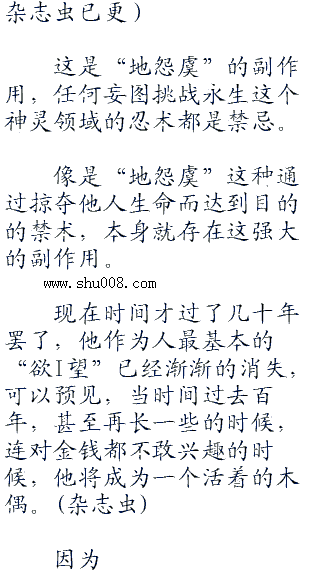 杂志虫已更）
这是“地怨虞”的副作
用，任何妄图挑战永生这个
神灵领域的忍术都是禁忌。
像是“地怨虞”这种通
过掠夺他人生命而达到目的
的禁术，本身就存在这强大
的副作用。
www.shu008.com
现在时间才过了几十年
罢了，他作为人最基本的
“欲I望”已经渐渐的消失，
可以预见，当时间过去百
年，甚至再长一些的时候，
连对金钱都不敢兴趣的时
候，他将成为一个活着的木
偶。(杂志虫)
因为